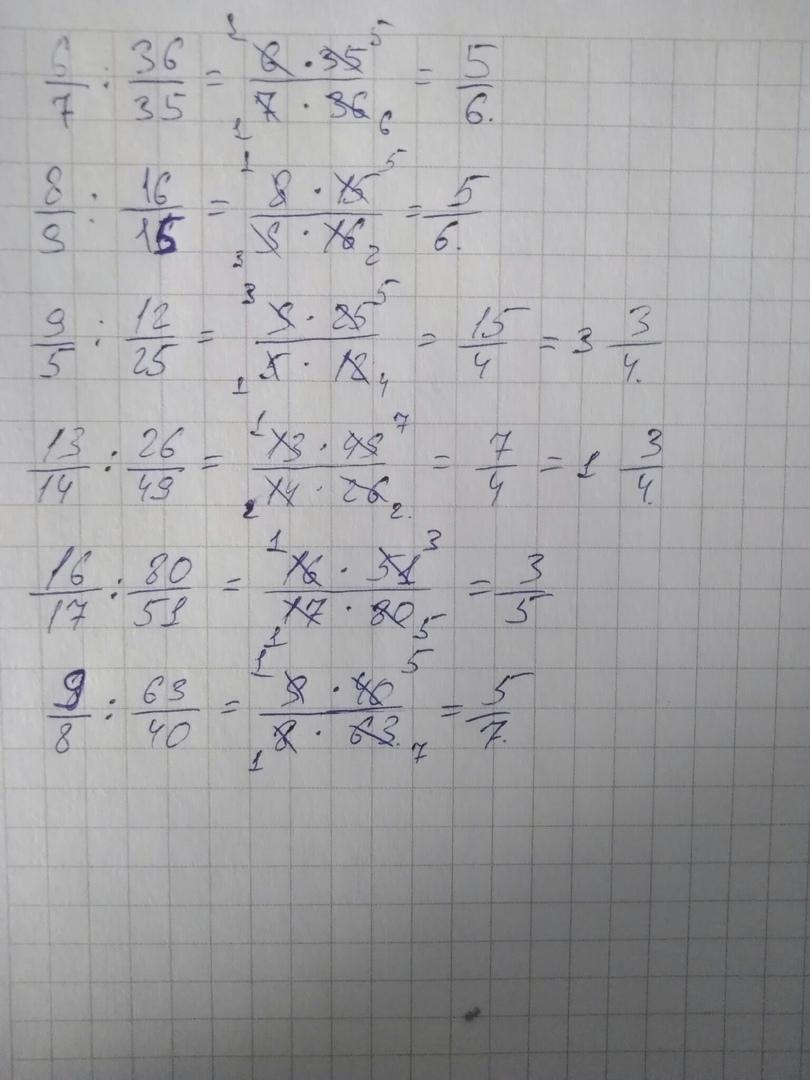 6/7 : 36/35 = 6 · 35 / 7 · 36 = 5/6.
8/9 : 16/15 = 8 · 15 / 9 · 16 = 5/6.
9/5 : 12/25 = 9 · 25 / 5 · 12 = 15/4 = 3 3/4.
13/14 : 26/49 = 13 · 49 / 14 · 26 = 7/4 = 1 3/4.
16/17 : 80/51 = 16 · 51 / 17 · 80 = 3/5
9/8 : 63/40 = 9 · 40 / 8 · 63 = 5/7.